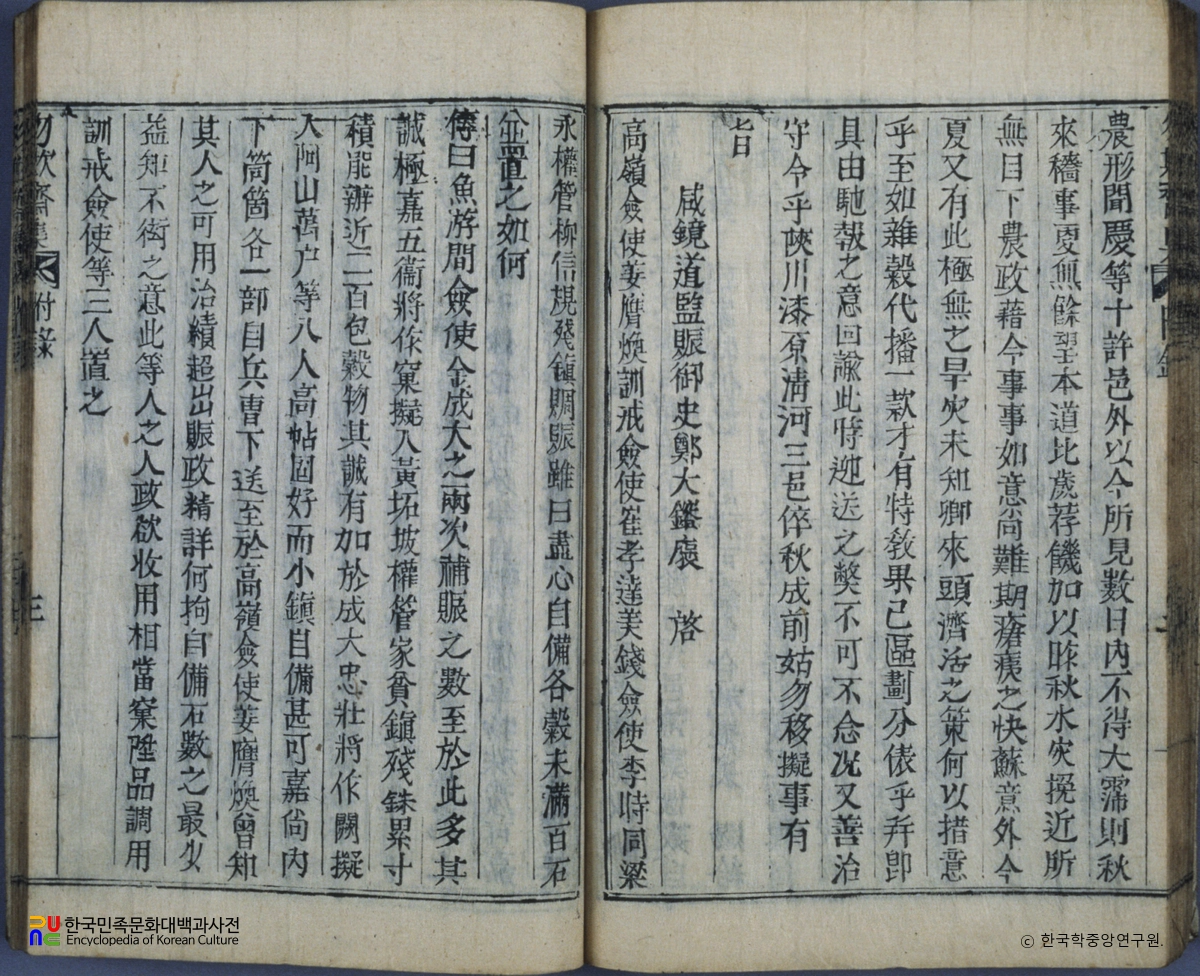 農形聞慶等十許邑外以今所見數日內不得大霈則秋
來穡事更無餘望本道比歲荐饑加以昨秋水灾挽近所
無目下農政藉今事事如意尚難期瘡痍之快蘇意外今
夏又有此極無之旱灾未知卿來頭濟活之策何以措意
乎至如雜穀代播一款才有特敎果已區劃分俵乎幷卽
具由馳啓之意回諭此時迎送之弊不可不念況又善治
守令乎陜川漆原淸河三邑倅秋成前姑勿移擬事有
旨
咸鏡道監賑御史鄭大鑑 啓
高嶺僉使姜膺煥訓戎僉使崔孝達美錢僉使李時同梁
永權管柳信棍殘鎭賙賑雖曰盡心自備各穀未滿百石
並置之如何
傳曰魚游間僉使金成大之兩次補賑之數至於此多其
誠極嘉五衞將作窠擬入黃坧坡權管家貧鎭殘銖累寸
積能辦近二百包穀物其誠有加於成大忠壯將作闕擬
入阿山萬戶等八人高帖固好而小鎭自備甚可嘉尙內
下筒箇各一部自兵曹下送至於高嶺僉使姜膺煥曾知
其人之可用治績超出賑政精詳何拘自備石數之最少
益知不衒之意此等人之人政欲收用相當窠陞品調用
訓戎僉使等三人置之
勿欺齋集 附錄 三
한국민족문화대백과사전
Encyclopedia of Korean Culture
© 한국학중앙연구원.